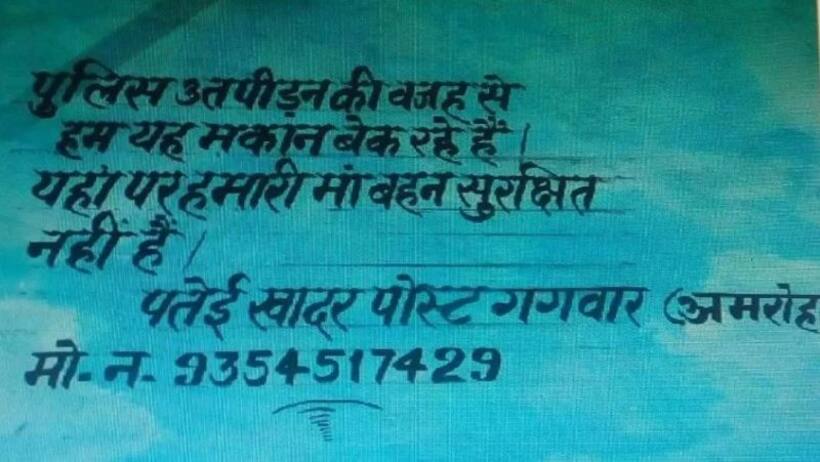 पुलिस उतपीड़न की वजह से
हम यह मकान बेक रहे हैं।
यहां पर हमारी मां बहन सुरक्षित
नहीं हैं।
पतेई खादर पोस्ट गगवार (अमरोह
मो- न- 9354517429